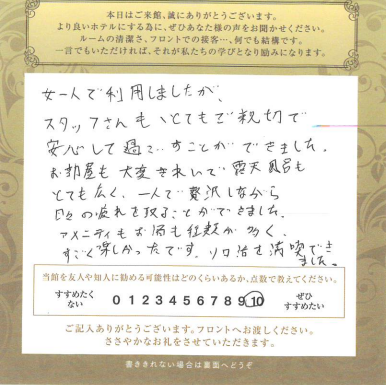 本日はご来館、誠にありがとうございます。
より良いホテルにする為に、ぜひあなた様の声をお聞かせください。
ルームの清潔さ、フロントでの接客…、何でも結構です。
一言でもいただければ、それが私たちの学びとなり励みになります。
女一人で利用しましたが、
スタッフさんも、とてもご親切で
安心して過ごすことができました。
お部屋も大変きれいで露天風呂も
とても広く、一人で贅沢しながら
日々の疲れを取ることができました。
アメニティもお風呂も種類が多く、
すごく楽しかったです。ソロ泊を満喫でき
ました。
当館を友人や知人に勧める可能性はどのくらいあるか、点数で教えてください。
すすめたくない 0 1 2 3 4 5 6 7 8 9 10 ぜひすすめたい
ご記入ありがとうございます。フロントへお渡しください。
ささやかなお礼をさせていただきます。
書ききれない場合は裏面へどうぞ